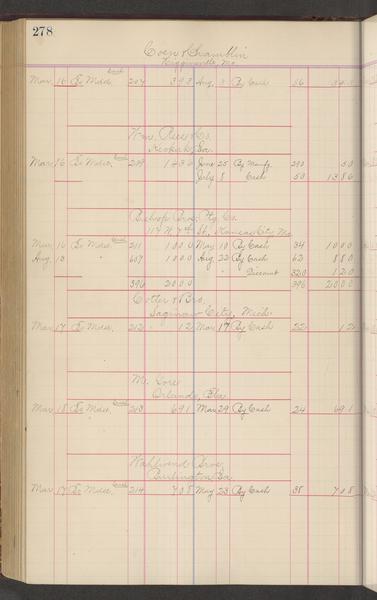 278
Coen & Shamblin
Higginsville, Mo.
Mar 16 To Mdse. 207 393 Aug 3 By Cash 56 393
Wm. & Co.
Keokuk, Ia.
Mar 16 To Mdse. 209 1436 June 25 By Manfg. 290 50
July 8 Cash 50 1386
Bishop Bros. Mfg. Co.
114 W. 7th St., Kansas City, Mo.
Mar 16 To Mdse. 211 1000 May 10 By Cash 34 1000
Aug. 10 " 607 1000 Aug 22 By Cash 62 880
" Discount 320 120
396 2000 396 2000
Cotter & Bro.
Saginaw City, Mich.
Mar 17 To Mdse. 212 12 Mar 17 By Cash 22 12
M. Gore
Orlando, Fla.
Mar 18 To Mdse. 213 691 Mar 29 By Cash 24 691
Bros.
Burlington, Ia.
Mar 17 To Mdse. 214 708 May 23 By Cash 38 708